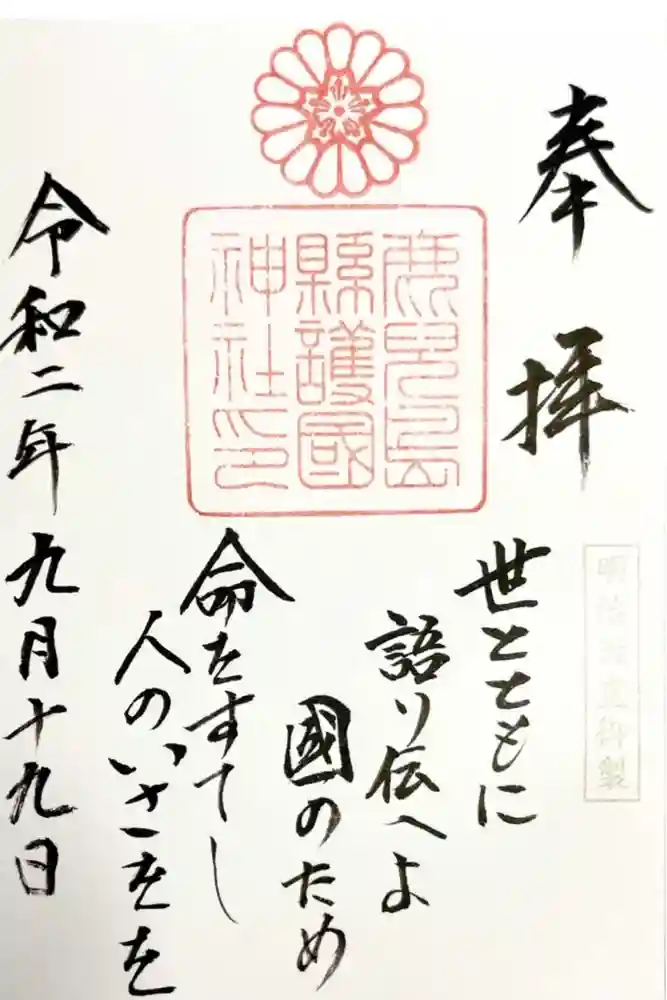 奉拝
明治天皇御製
鹿児島
縣護國
神社印
世とともに
語り伝へよ
國のため
命をすてし
人のいさをを
令和二年九月十九日